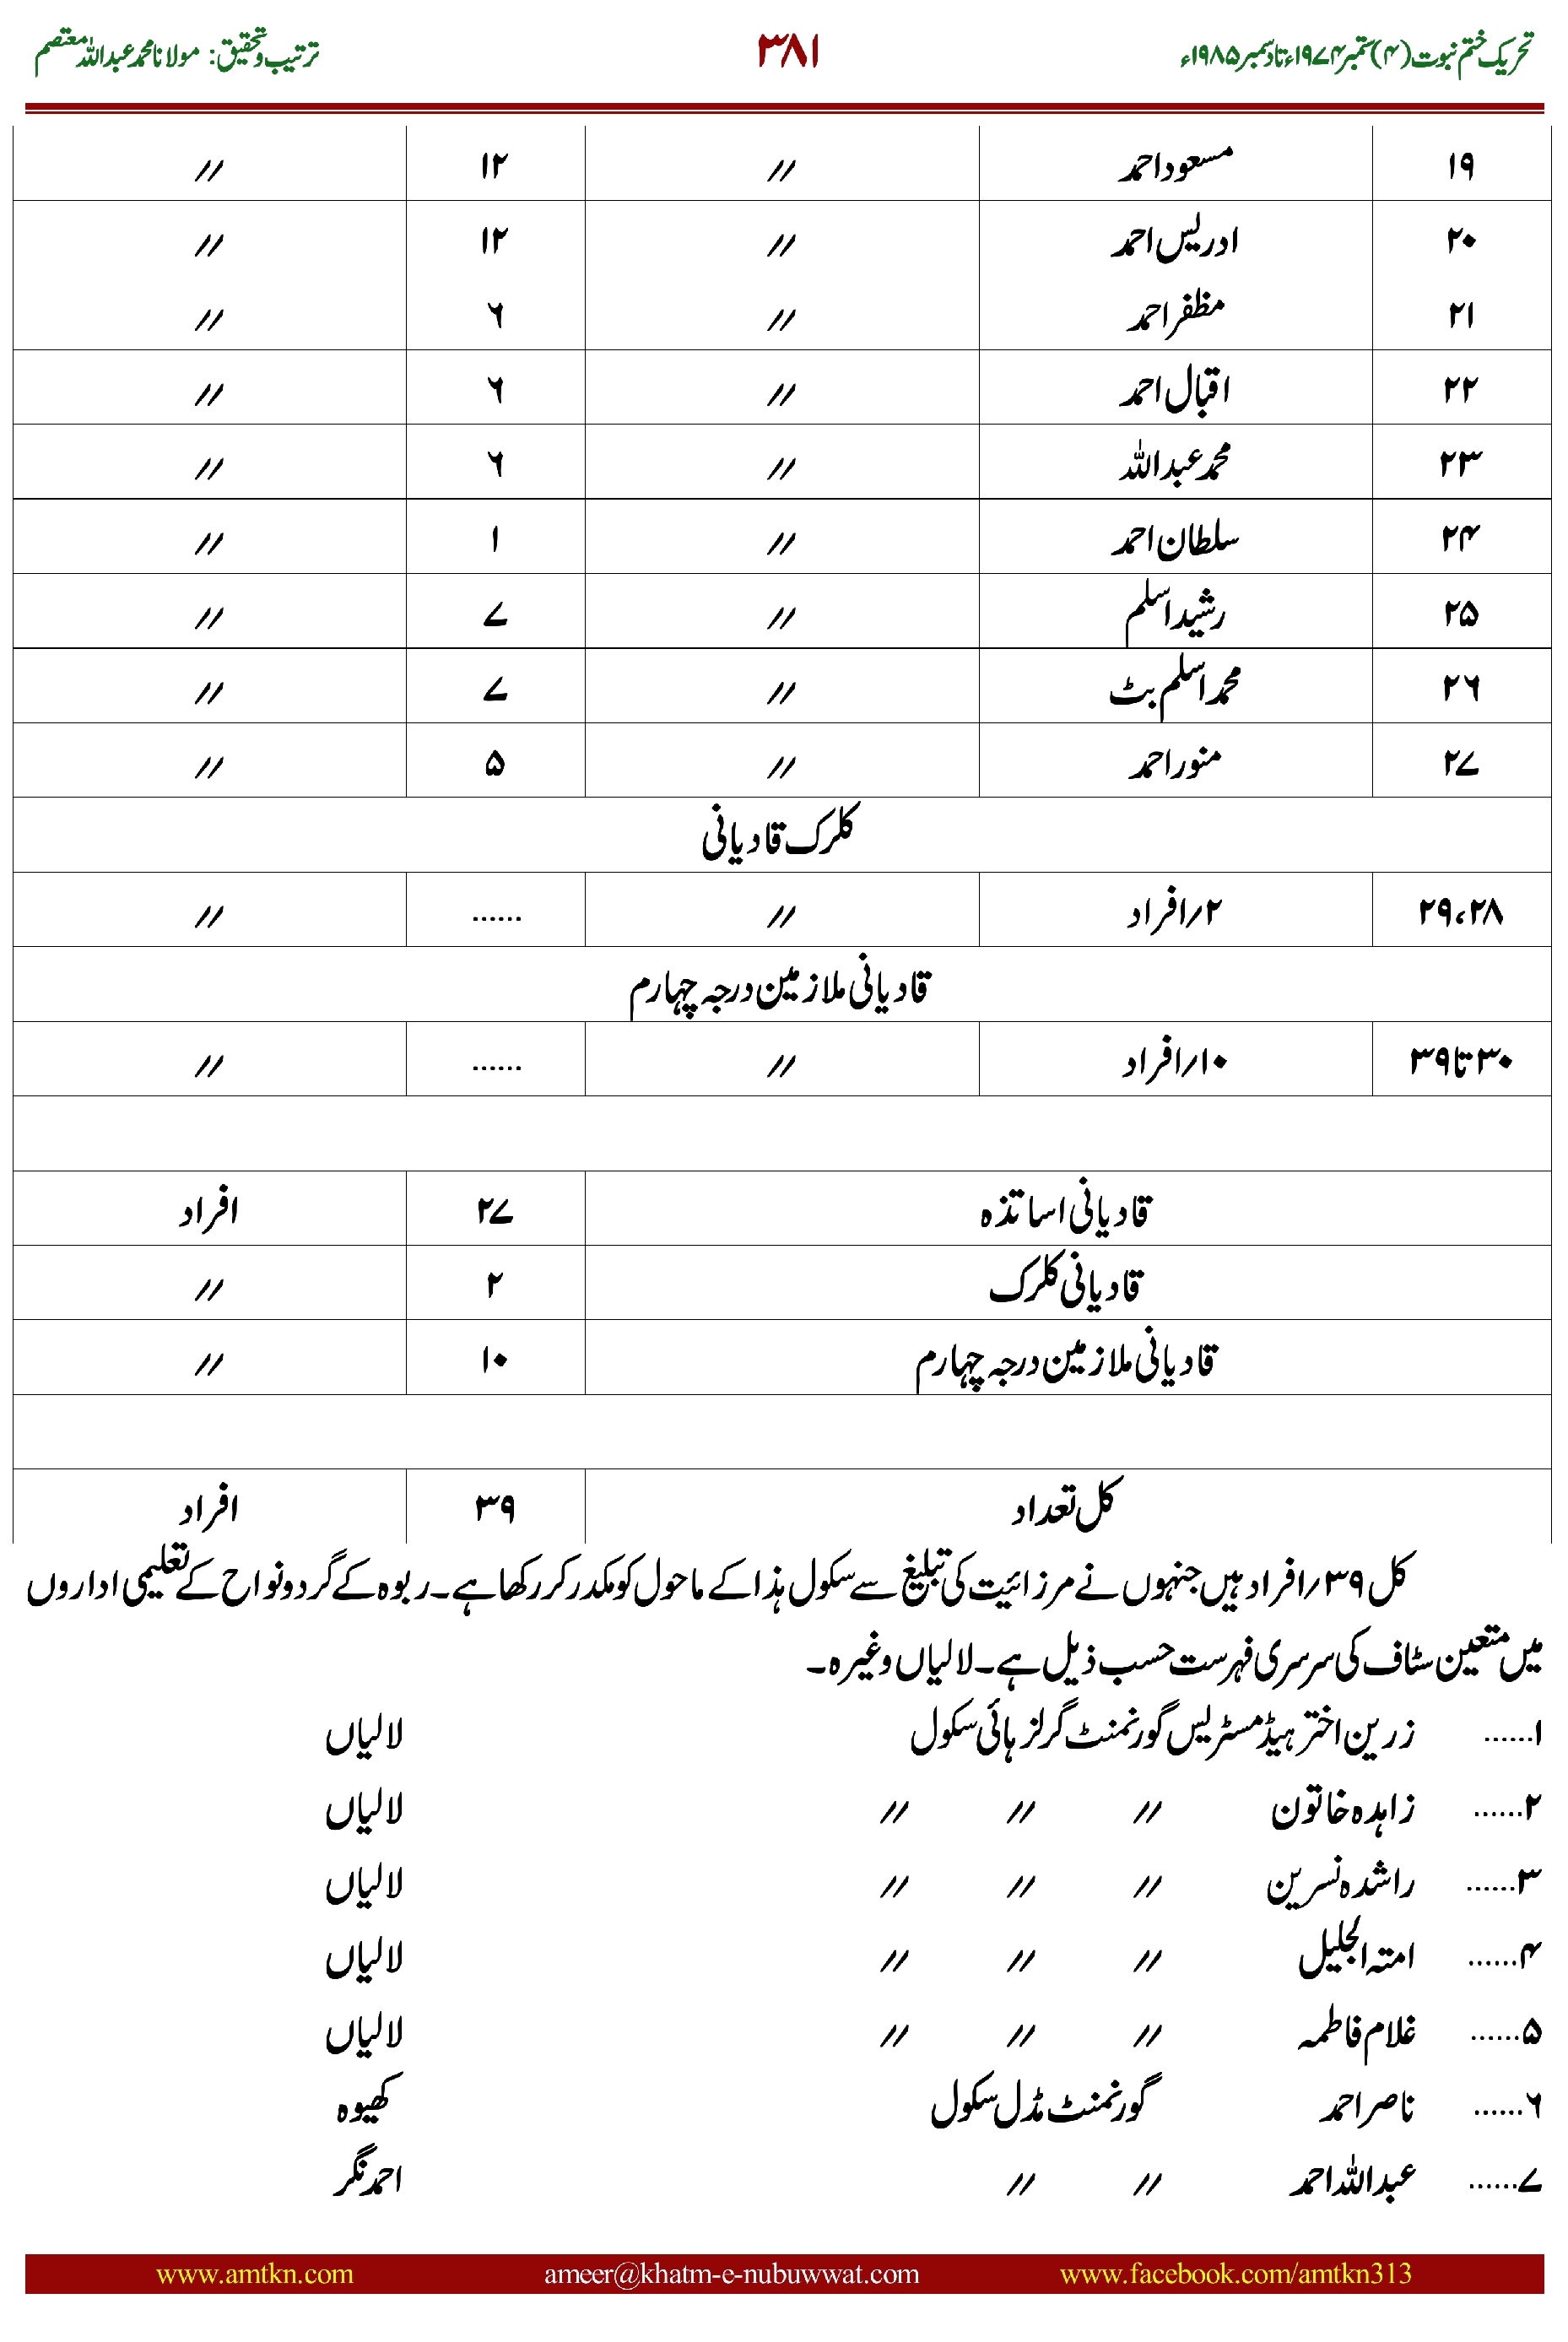 تحریک ختم نبوت (۴) ستمبر ۱۹۷۴ء تا دسمبر ۱۹۸۵ء ۳۸۱ ترتیب و تحقیق: مولانا محمد عبداللہ معتصم
۱۹ مسعود احمد // ۱۲ //
۲۰ ادریس احمد // ۱۲ //
۲۱ مظفر احمد // ۶ //
۲۲ اقبال احمد // ۶ //
۲۳ محمد عبداللہ // ۶ //
۲۴ سلطان احمد // ۱ //
۲۵ رشید اسلم // ۷ //
۲۶ محمد اسلم بٹ // ۷ //
۲۷ منور احمد // ۵ //
کلرک قادیانی
۲۸، ۲۹ ۲/افراد // ...... //
قادیانی ملازمین درجہ چہارم
۳۰ تا ۳۹ ۱۰/افراد // ...... //
قادیانی اساتذہ ۲۷ افراد
قادیانی کلرک ۲ //
قادیانی ملازمین درجہ چہارم ۱۰ //
کل تعداد ۳۹ افراد
کل ۳۹/افراد ہیں جنہوں نے مرزائیت کی تبلیغ سے سکول ہذا کے ماحول کو مکدر کر رکھا ہے۔ ربوہ کے گرد و نواح کے تعلیمی اداروں
میں متعین سٹاف کی سرسری فہرست حسب ذیل ہے۔ لالیاں وغیرہ۔
۱...... زرین اختر ہیڈ مسٹریس گورنمنٹ گرلز ہائی سکول لالیاں
۲...... زاہدہ خاتون // // // لالیاں
۳...... راشدہ نسرین // // // لالیاں
۴...... امتہ الجلیل // // // لالیاں
۵...... غلام فاطمہ // // // لالیاں
۶...... ناصر احمد گورنمنٹ مڈل سکول کھیوہ
۷...... عبداللہ احمد // // احمد نگر
www.amtkn.com ameer@khatm-e-nubuwwat.com www.facebook.com/amtkn313